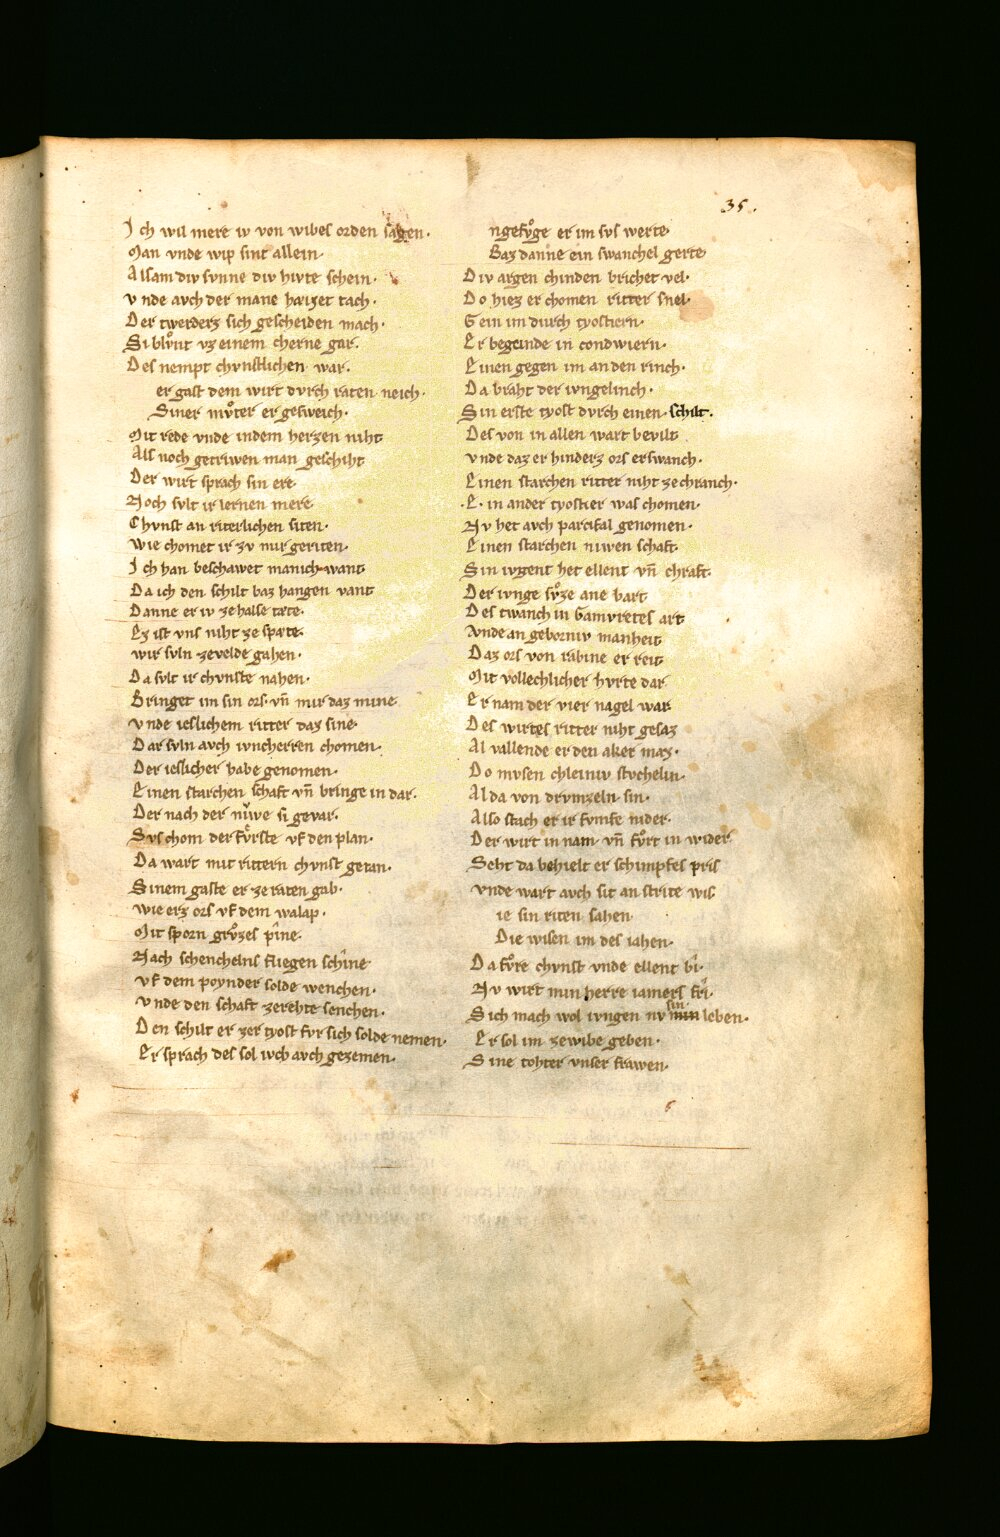 35.
Ich wil mere iv von wibes orden sagen.
Man vnde wip sint allein.
Alsam div svnne div hivte schein.
vnde avch der mane haizet tach.
Der twerderz sich gescheiden mach.
Si blvͦnt vz einem cherne gar.
Des nempt chvnstlichen war.
er gast dem wirt dvrch raten neich.
Siner mvͦter er gesweich.
Mit rede vnde indem herzen niht
Als noch getriwen man geschiht
Der wirt sprach sin ere
Noch svlt ir lernen mere
Chvnst an riterlichen siten.
wie chomet ir zv mir geriten.
Ich han beschawet manich want
Da ich den schilt baz hangen vant
Danne er iv ze halse tæte.
Ez ist vns niht ze spæte.
wir svln zevelde gahen.
Da svlt ir chvnste nahen.
Bringet im sin ors. vn̄ mir daz mine
vnde ieslichem ritter daz sine.
Dar svln avch ivncherren chomen.
Der ieslicher habe genomen.
Einen starchen schaft vn̄ bringe in dar.
Der nach der nivwe si gevar.
Svs chom der fvͤrste vf den plan.
Da wart mit rittern chvnst getan.
Sinem gaste er ze raten gab.
wie erz ors vf dem walap.
Mit sporn grvͦzes pîne.
Nach schenchelns fliegen schîne
vf dem poynder solde wenchen.
vnde den schaft zerehte senchen.
Den schilt er zer tyost fvr sich solde nemen.
Er sprach des sol ivch avch gezemen.
ngefvͦge er im svs werte.
Baz danne ein swanchel gerte
Div argen chinden brichet vel.
Do hiez er chomen ritter snel.
Gein im dvrch tyostiern.
Er begeinde in condwiern.
Einen gegen im an den rinch.
Da braht der ivngelinch.
Sin erste tyost dvrch einen schilt.
Des von in allen wart bevilt
vnde daz er hinderz ors erswanch.
Einen starchen ritter niht ze chranch.
.E. in ander tyostier was chomen.
Nv het avch parcifal genomen.
Einen starchen niwen schaft.
Sin ivgent het ellent vn̄ chraft.
Der ivnge sv̊ze ane bart
Des twanch in Gamvretes art
vnde an geborniv manheit
Daz ors von rabine er reit
Mit vollechlicher hvrte dar
Er nam der vier nagel war
Des wirtes ritter niht gesaz
Al vallende er den aker maz.
Do mvsen chleiniv stvchelin.
Al da von drvmzeln sin.
Also stach er ir fvmfe nider.
Der wirt in nam. vn̄ fvͦrt in wider
Seht da behielt er schimpfes pris
vnde wart avch sit an strite wis
ie sin riten sahen
Die wisen im des iahen.
Da fvͦre chvnst vnde ellent bî.
Nv wirt min herre iamers fri.
Sich mach wol ivngen nv min sin leben.
Er sol im ze wibe geben.
Sine tohter vnser frawen.